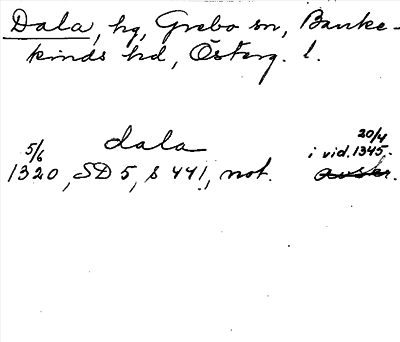 Dala, hg, Grebo sn, Banke-
kinds hd, Österg. l.
dala
5/6 1320, SD 5, s 441, not. i vid. 20/4 1345. avskr.